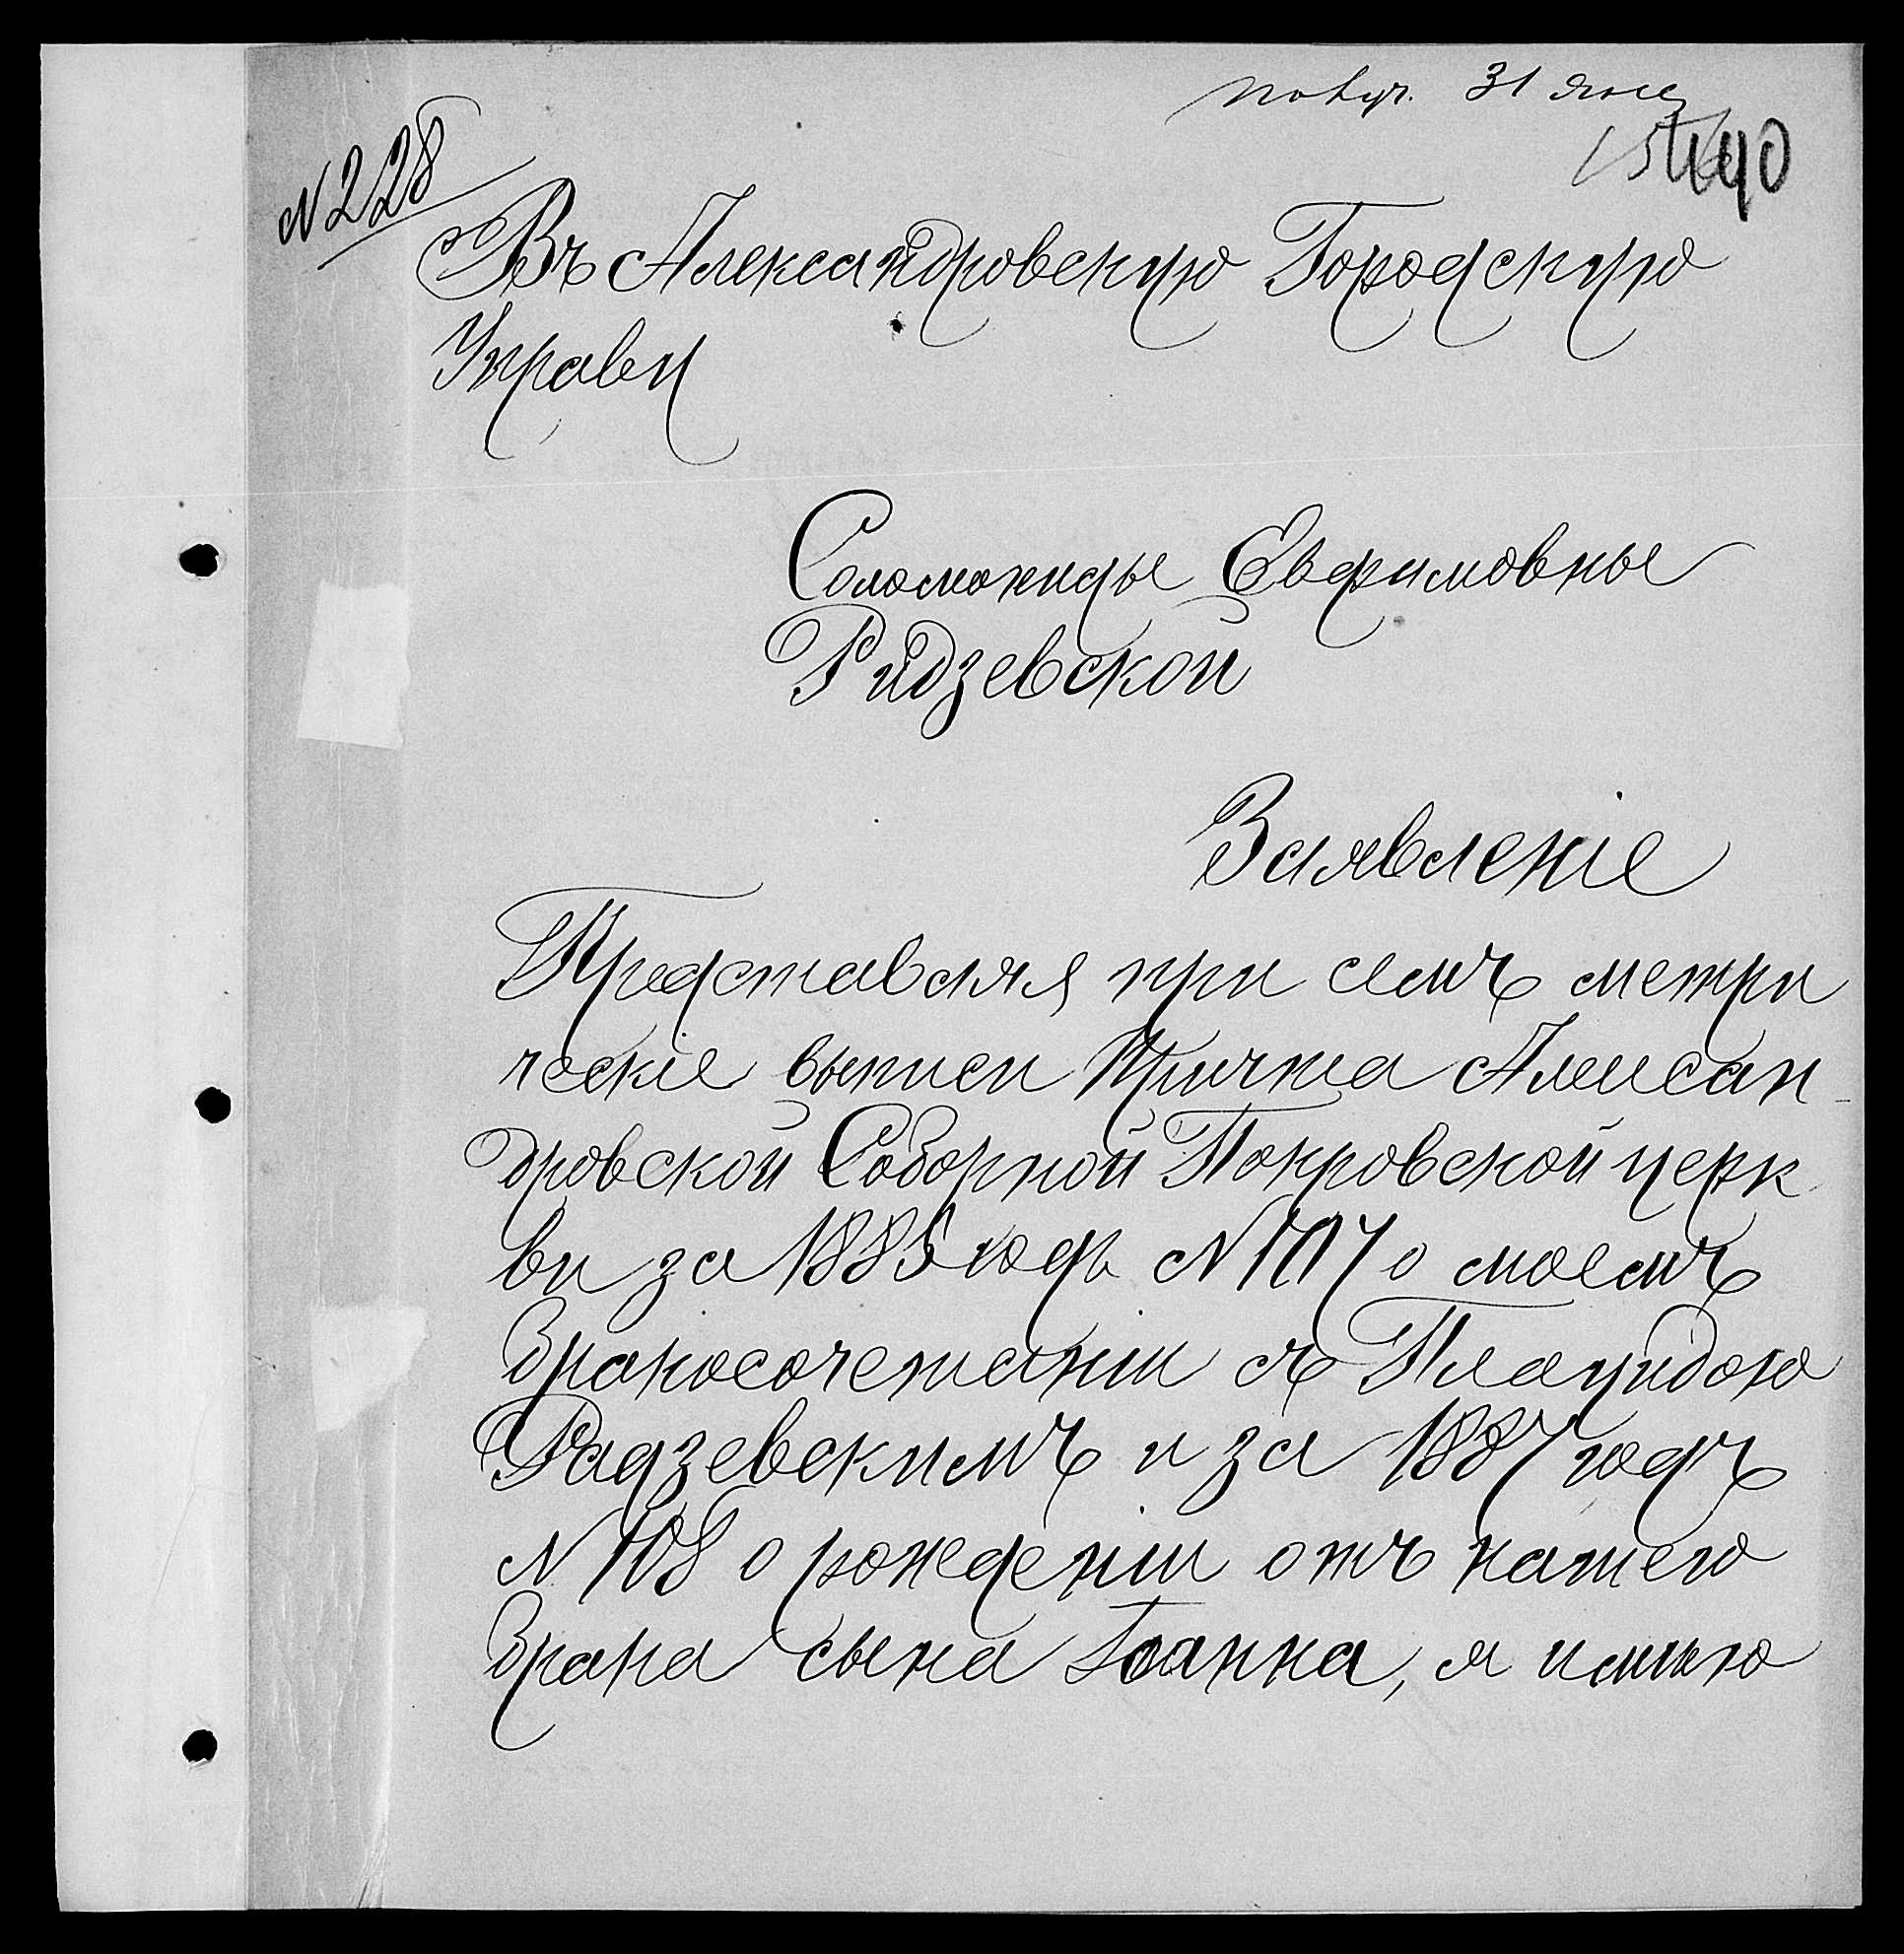 получ. 31 янв
140
№ 228
Въ Александровскую Городскую
Управу
Соломониды Евфимовны
Радзевской
Заявленіе
Представляя при семъ метри
ческіе выписи Причта Алексан-
дровской Соборной Покровской церк
ви за 1885 годъ № о моемъ
бракосочетаніи съ Плацидою
Радзевскимъ и за 1887 годъ
№ 108 о рожденіи отъ нашего
брака сына Іоанна, я имѣю